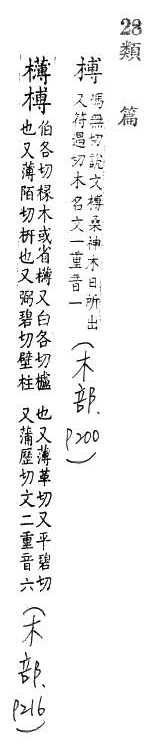 28類篇
榑馮無切說文榑桑神木日所出
又符遇切木名文一重音一
(木部、P200)
欂榑伯各切椽木或省欂又白各切櫨
也又薄陌切枅也又弼碧切壁柱
也又薄革切又平碧切
又蒲歷切文二重音六
(木部、P216)